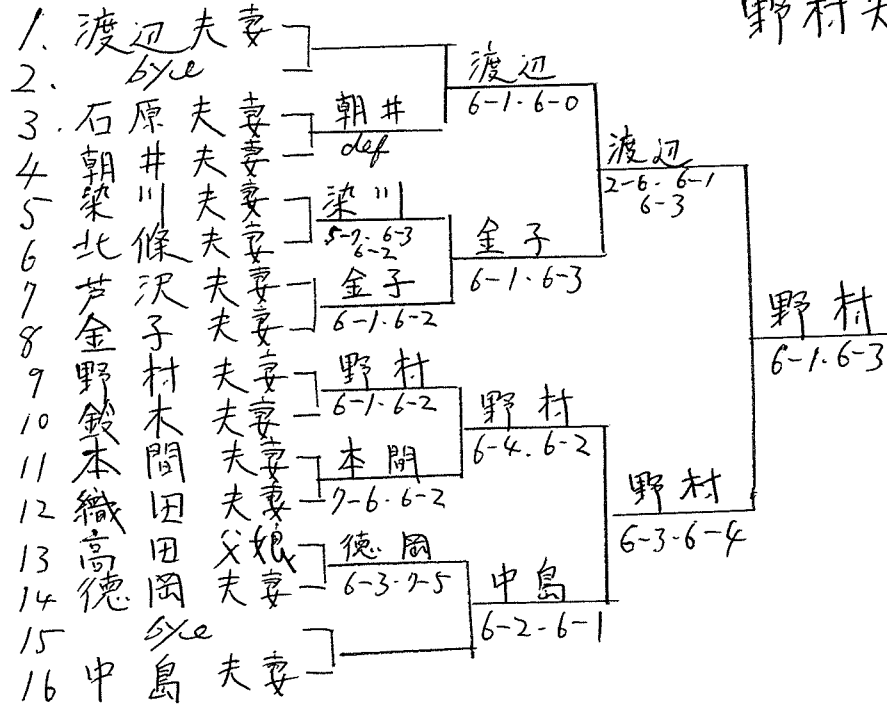 野村夫
1. 渡辺夫妻
2. bye
3. 石原夫妻
4 朝井夫妻
5 染川夫妻
6 北條夫妻
7 芦沢夫妻
8 金子夫妻
9 野村夫妻
10 鈴木夫妻
11 本間夫妻
12 織田夫妻
13 高田父娘
14 徳岡夫妻
15 bye
16 中島夫妻
朝井
def
染川
5-7. 6-3
6-2
金子
6-1. 6-2
野村
6-1. 6-2
本間
7-6. 6-2
徳岡
6-3. 7-5
渡辺
6-1. 6-0
金子
6-1. 6-3
野村
6-4. 6-2
中島
6-2 - 6-1
渡辺
2-6. 6-1
6-3
野村
6-3. 6-4
野村
6-1. 6-3